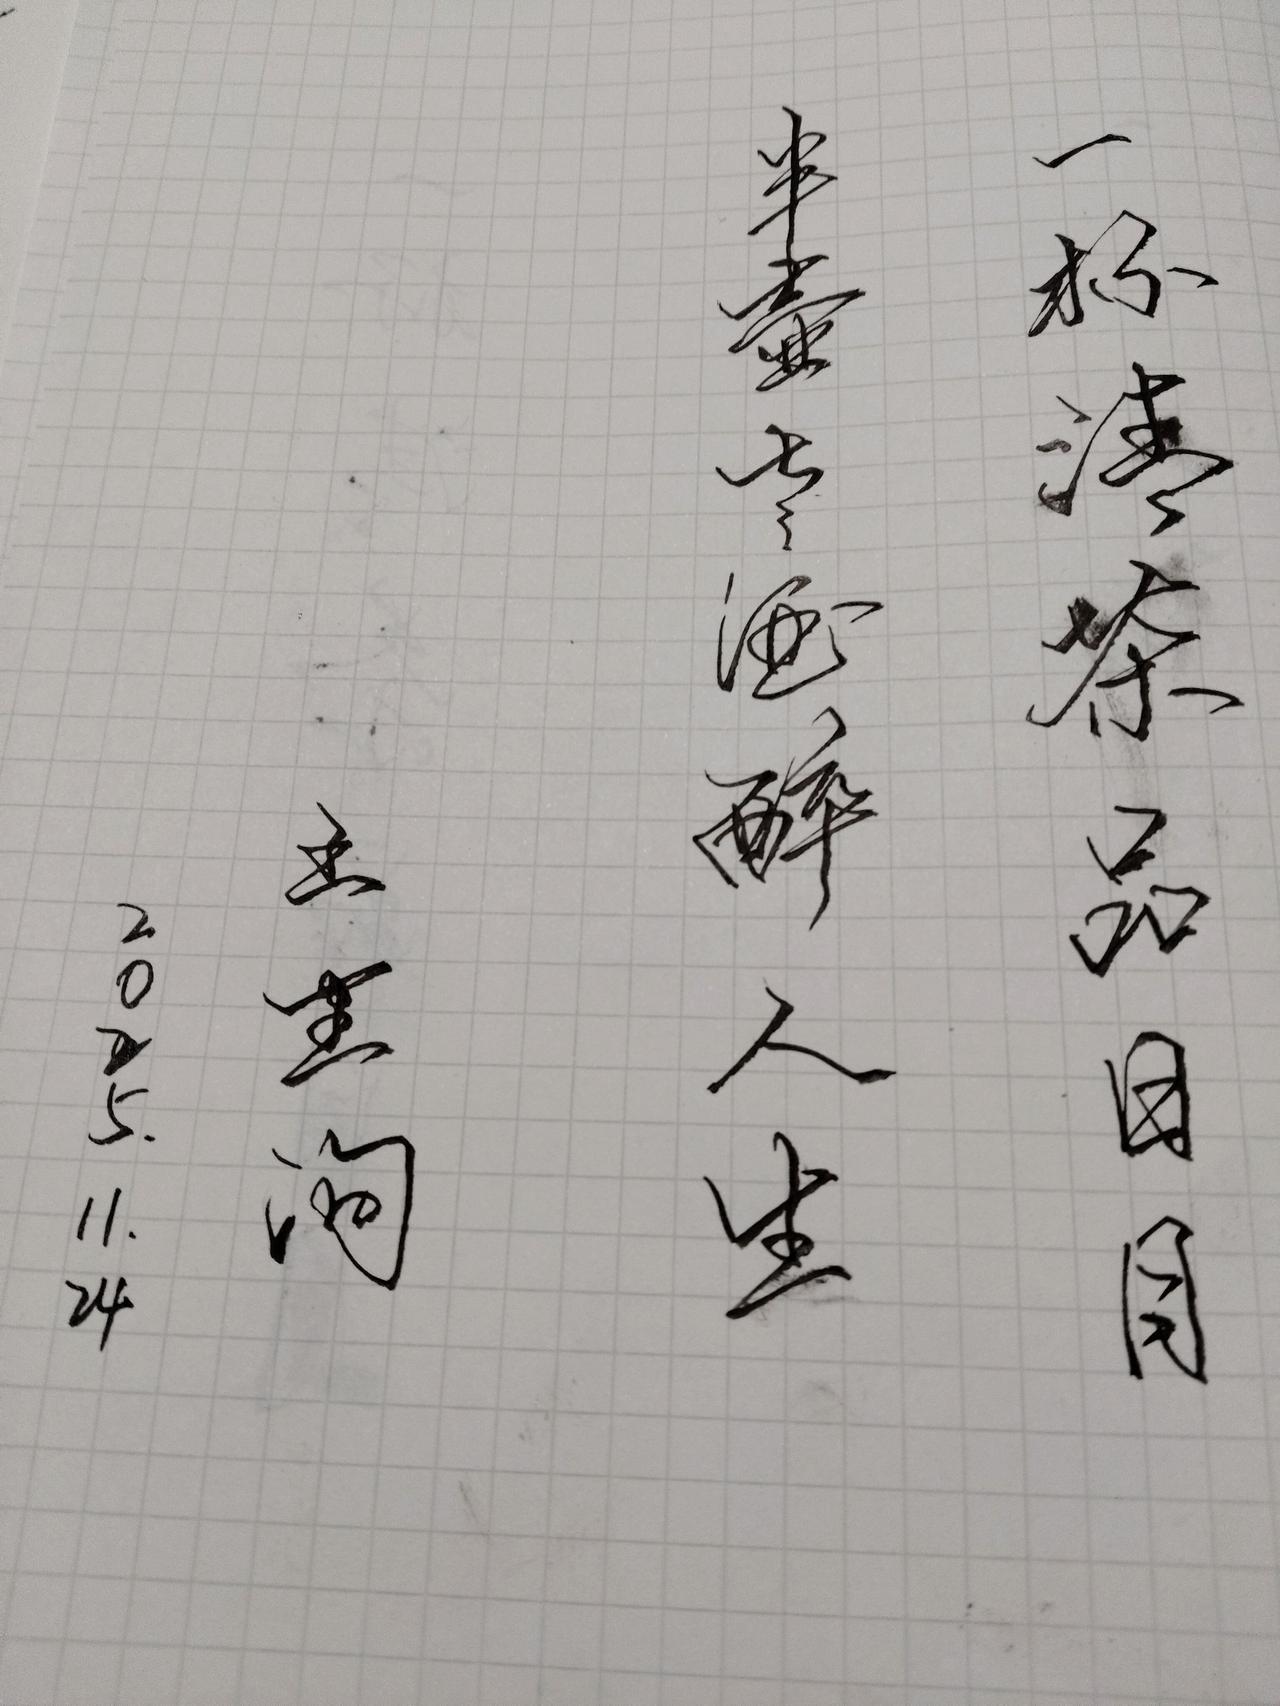 一杯清茶品日月
半壶老酒醉人生
2025.11.24